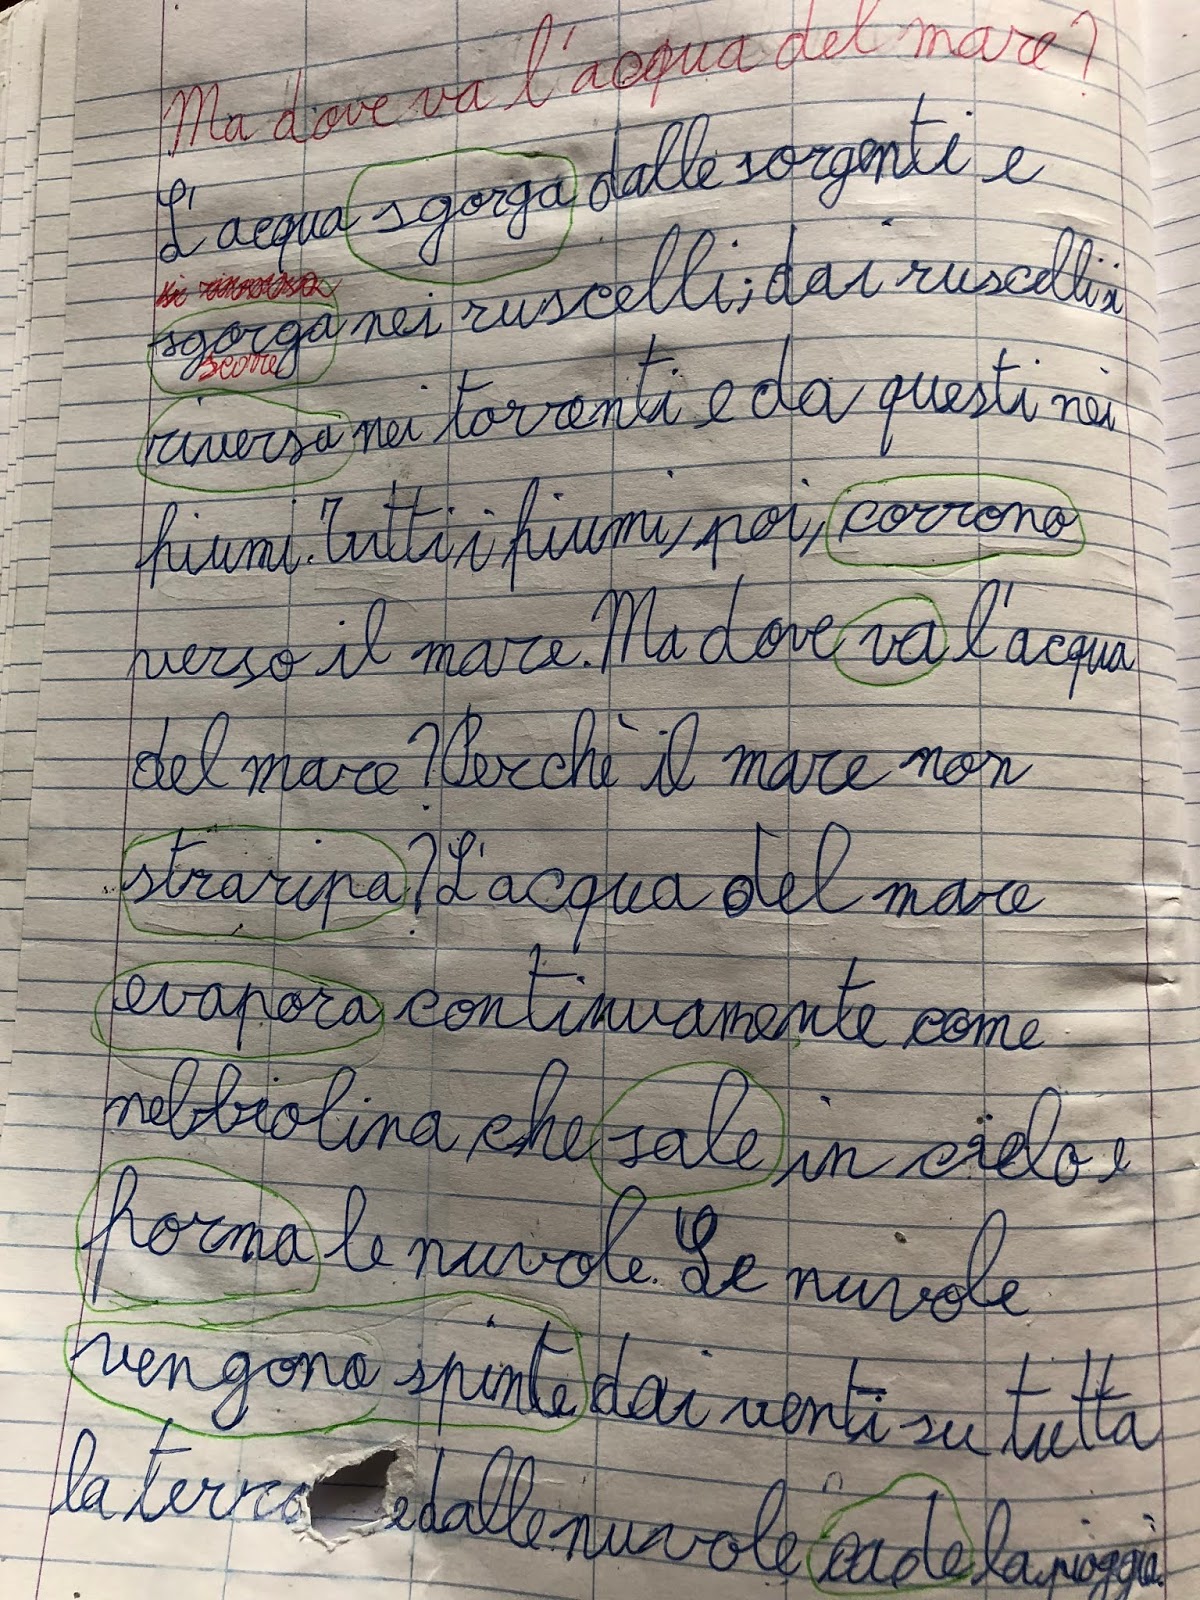 Ma dove va l'acqua del mare?
L'acqua sgorga dalle sorgenti e
si riversa
sgorga nei ruscelli; dai ruscelli si
scorre
riversa nei torrenti e da questi nei
fiumi. Tutti i fiumi, poi, corrono
verso il mare. Ma dove va l'acqua
del mare? Perchè il mare non
straripa? L'acqua del mare
evapora continuamente come
nebbiolina che sale in cielo e
forma le nuvole. Le nuvole
vengono spinte dai venti su tutta
la terra e dalle nuvole cade la pioggia.